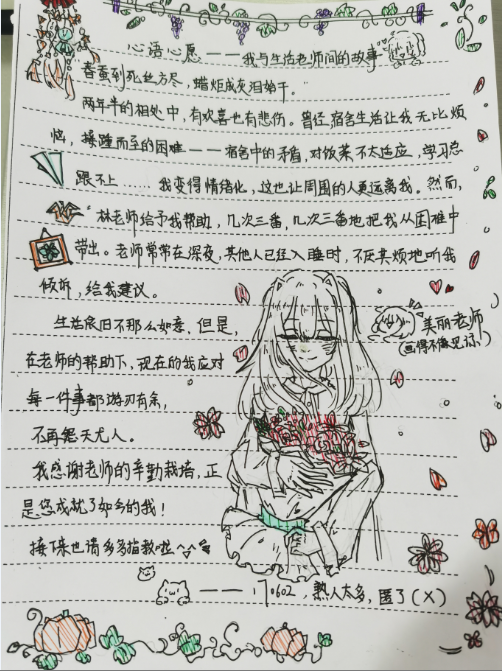 心语心愿——我与生活老师间的故事
春蚕到死丝方尽，蜡炬成灰泪始干。
两年半的相处中，有欢喜也有悲伤。曾经宿舍生活让我无比烦
恼，接踵而至的困难——宿舍中的矛盾，对饭菜不太适应，学习总
跟不上……我变得情绪化，这也让周围的人更远离我。然而，
林老师给予我帮助，几次三番，几次三番地把我从困难中
带出。老师常常在深夜，其他人已经入睡时，不厌其烦地听我
倾诉，给我建议。
生活依旧不那么如意，但是，
美丽老师
(画得不像见谅！)
在老师的帮助下，现在的我应对
每一件事都游刃有余，
不再怨天尤人。
我感谢老师的辛勤栽培，正
是您成就了如今的我！
接下来也请多多指教啦~
——170602，熟人太多，匿了(X)